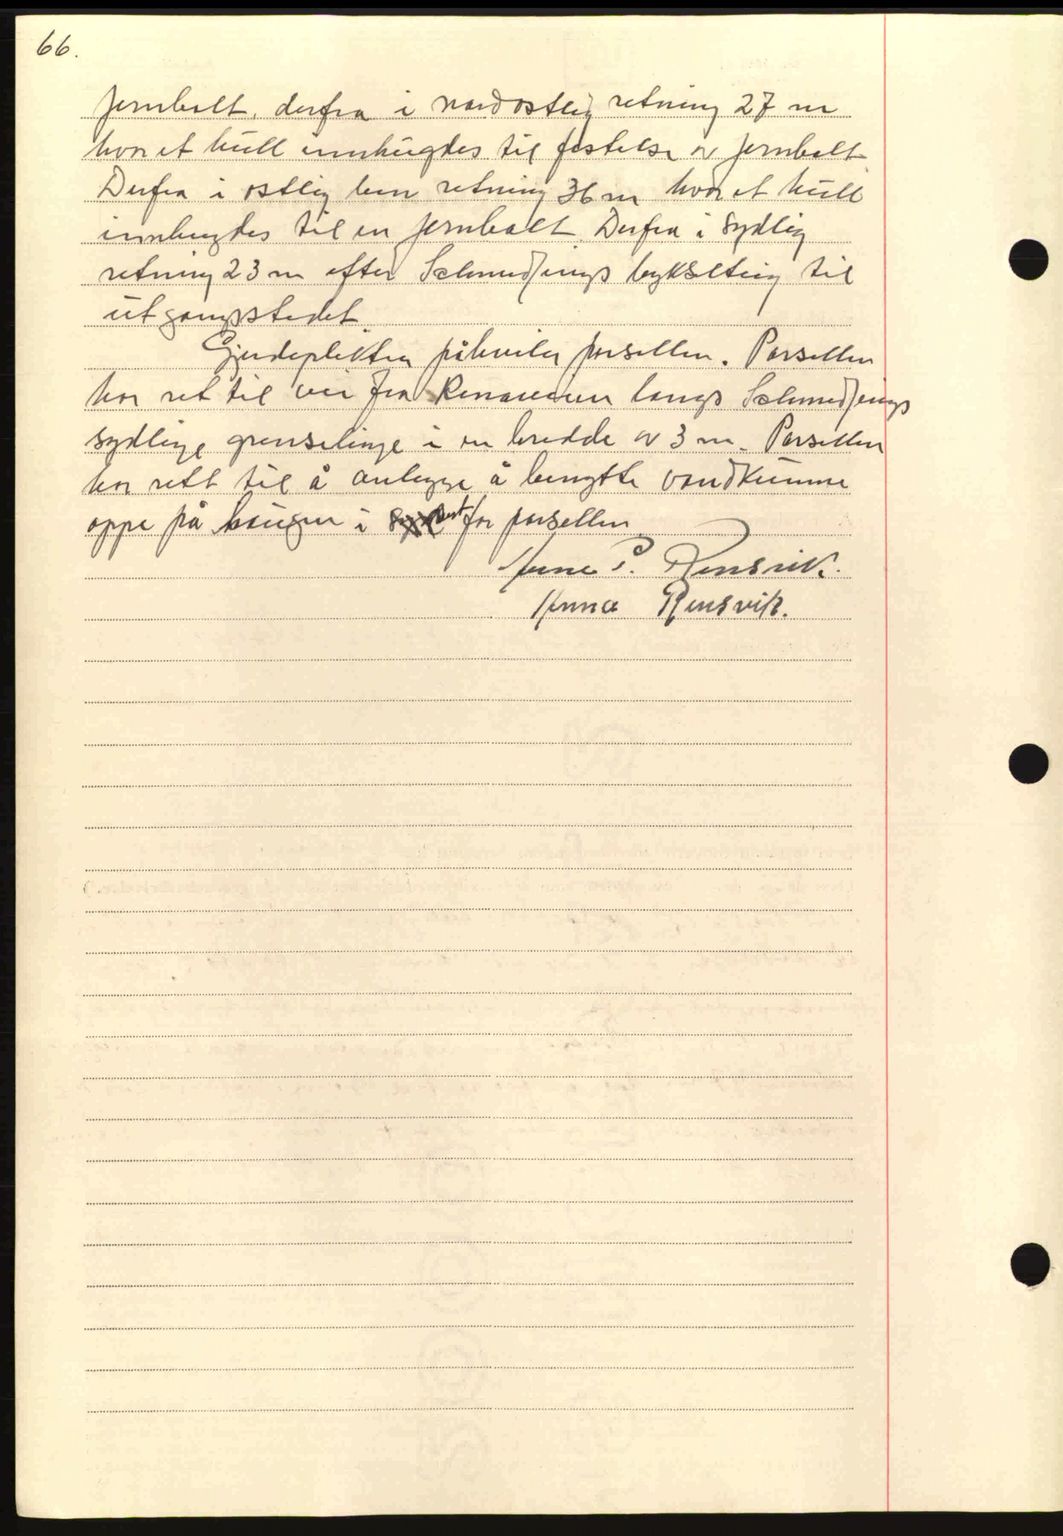 66.
jernbolt, derfra i nordostlig retning 27 m
hvor et hull innhugdes til festelse av jernbolt
Derfra i ostlig ben retning 36 m hvor et hull
innhugdes til en jernbolt. Derfra i sydlig
retning 23 m efter Schmedjings bykselteig til
utgangsstedet.
Gjerdeplikten påhviler parsellen. Parsellen
har ret til vei fra Rensveien langs Schmedjings
sydlige grenselinje i en bredde av 3 m. Parsellen
har rett til å anlegge å benytte vandkumme
oppe på haugen i vest for parsellen
Anne P. Rensvik.
Anna Rensvik.